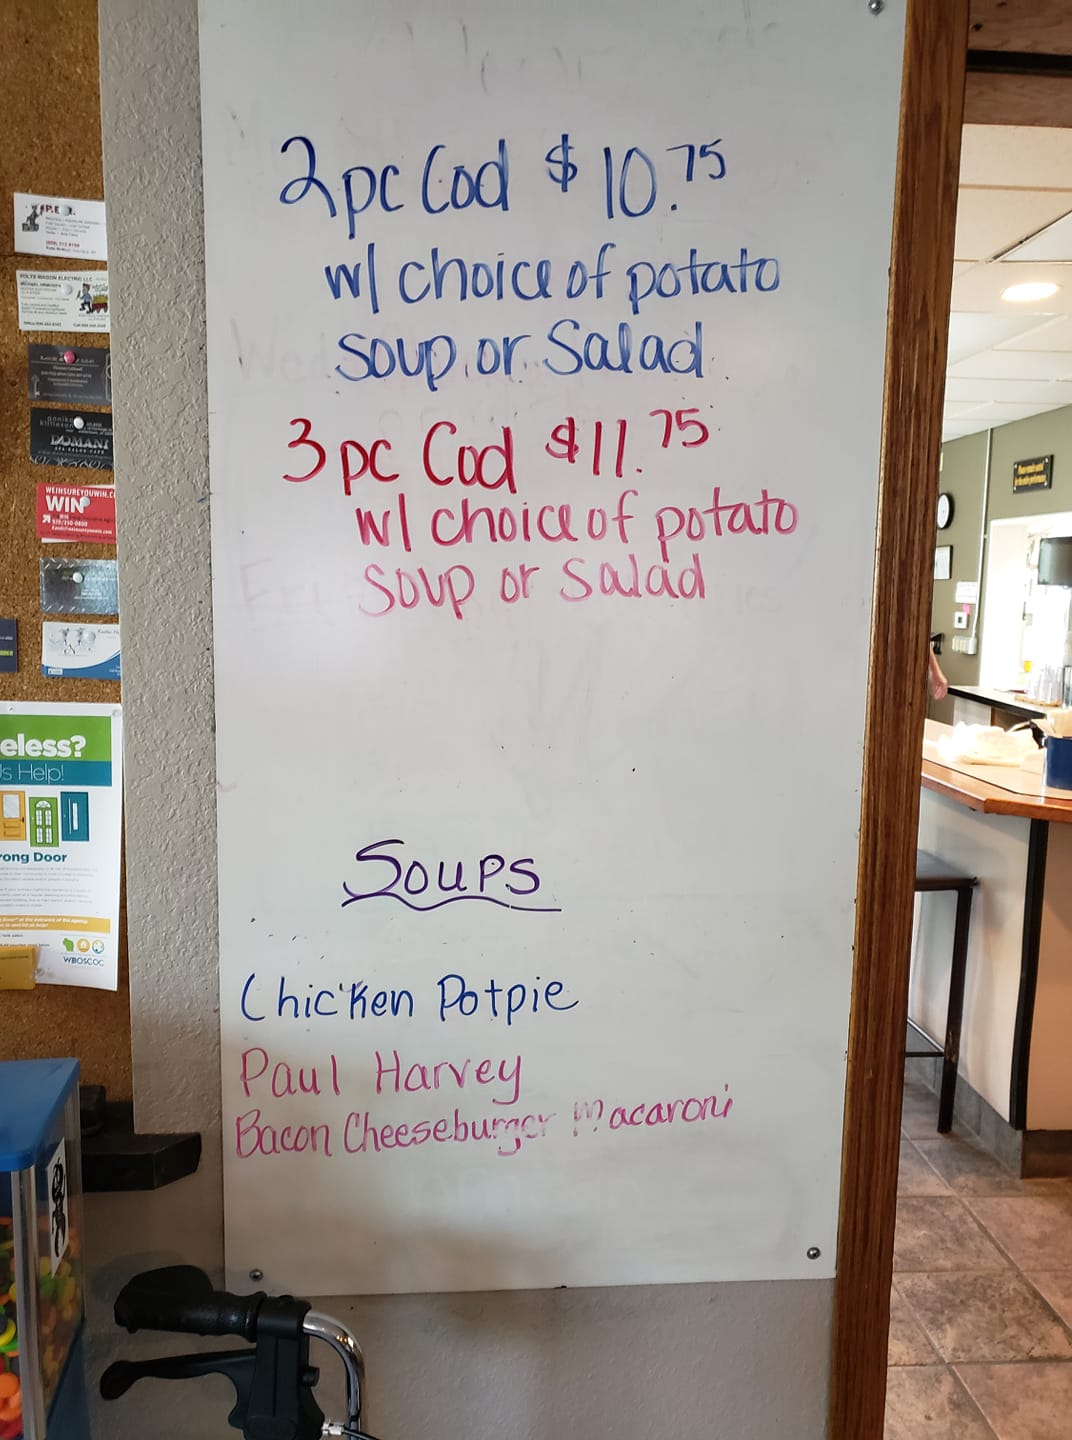 2pc Cod $10.75
w/ choice of potato
soup or Salad
3pc Cod $11.75
w/ choice of potato
soup or salad
Soups
Chicken Potpie
Paul Harvey
Bacon Cheeseburger Macaroni
VOLTS WAGON ELECTRIC LLC
DOMANI
WEINSUREYOUWIN.C
WIN
eless?
s Help!
rong Door
WBOSCOC